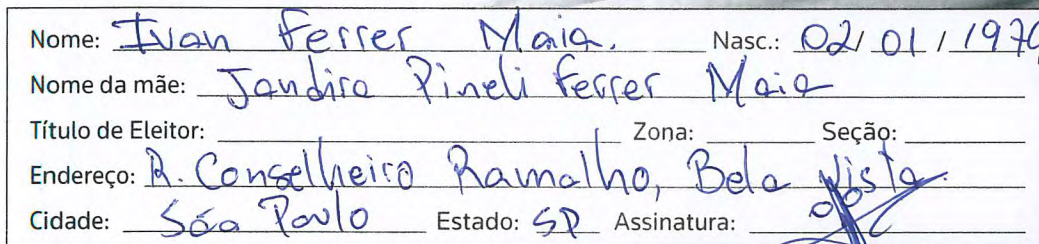 Nome: Ivan Ferrer Maia. Nasc.: 02/01/1970
Nome da mãe: Jandira Pineli Ferrer Maia
Título de Eleitor: Zona: Seção:
Endereço: R. Conselheiro Ramalho, Bela Vista.
Cidade: São Paulo Estado: SP Assinatura: